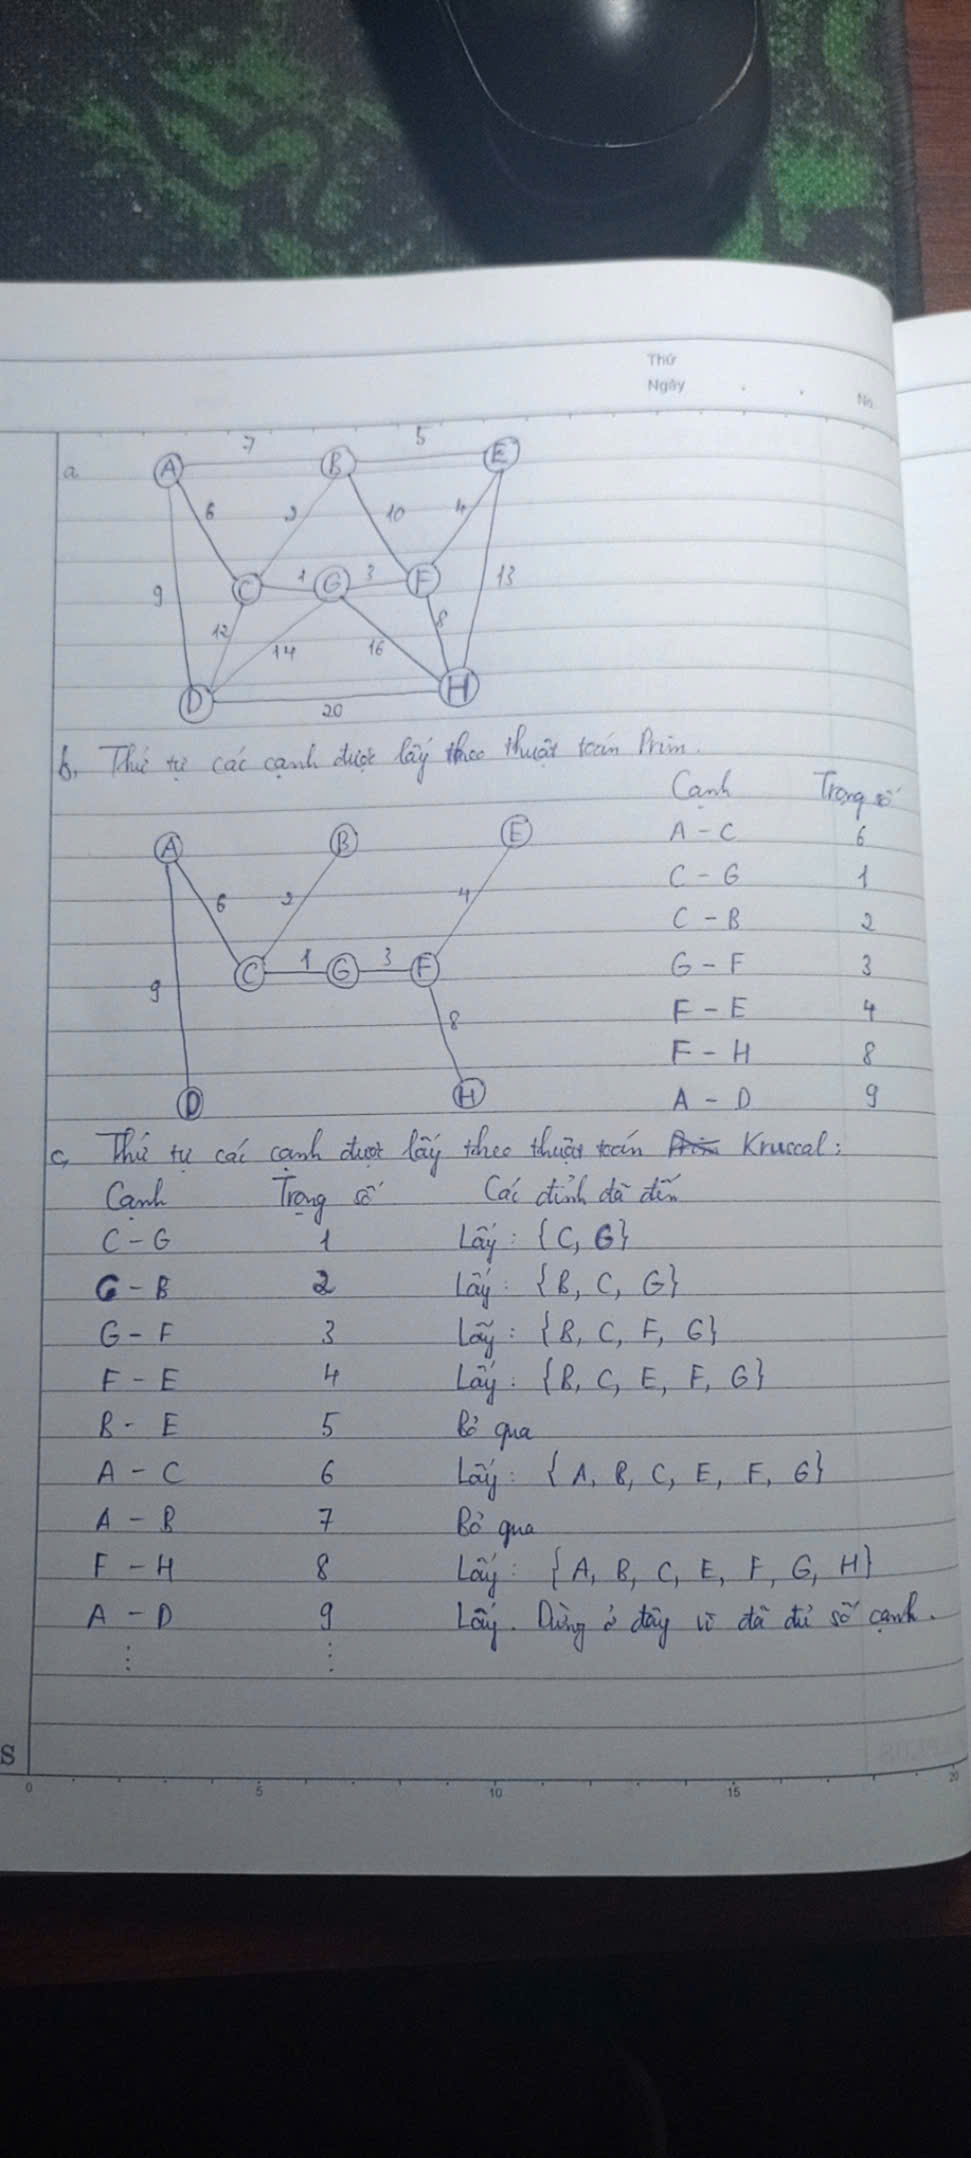 Thứ
Ngày . .
No.
a
7 5
A B E
6 2 10 4
9 C 1 G 3 F 13
12 14 16 8
D H
20
b, Thứ tự các cạnh được lấy theo thuật toán Prim.
Cạnh Trọng số
A - C 6
C - G 1
C - B 2
G - F 3
F - E 4
F - H 8
A - D 9
A B E
6 2 4
C 1 G 3 F
9 8
D H
c, Thứ tự các cạnh được lấy theo thuật toán Prim Kruscal:
Cạnh Trọng số Các đỉnh đã đến
C - G 1 Lấy : {C, G}
C - B 2 Lấy : {B, C, G}
G - F 3 Lấy : {B, C, F, G}
F - E 4 Lấy : {B, C, E, F, G}
B - E 5 Bỏ qua
A - C 6 Lấy : {A, B, C, E, F, G}
A - B 7 Bỏ qua
F - H 8 Lấy : {A, B, C, E, F, G, H}
A - D 9 Lấy. Dừng ở đây vì đã đủ số cạnh.
⋮ ⋮
S
0 5 10 15 20